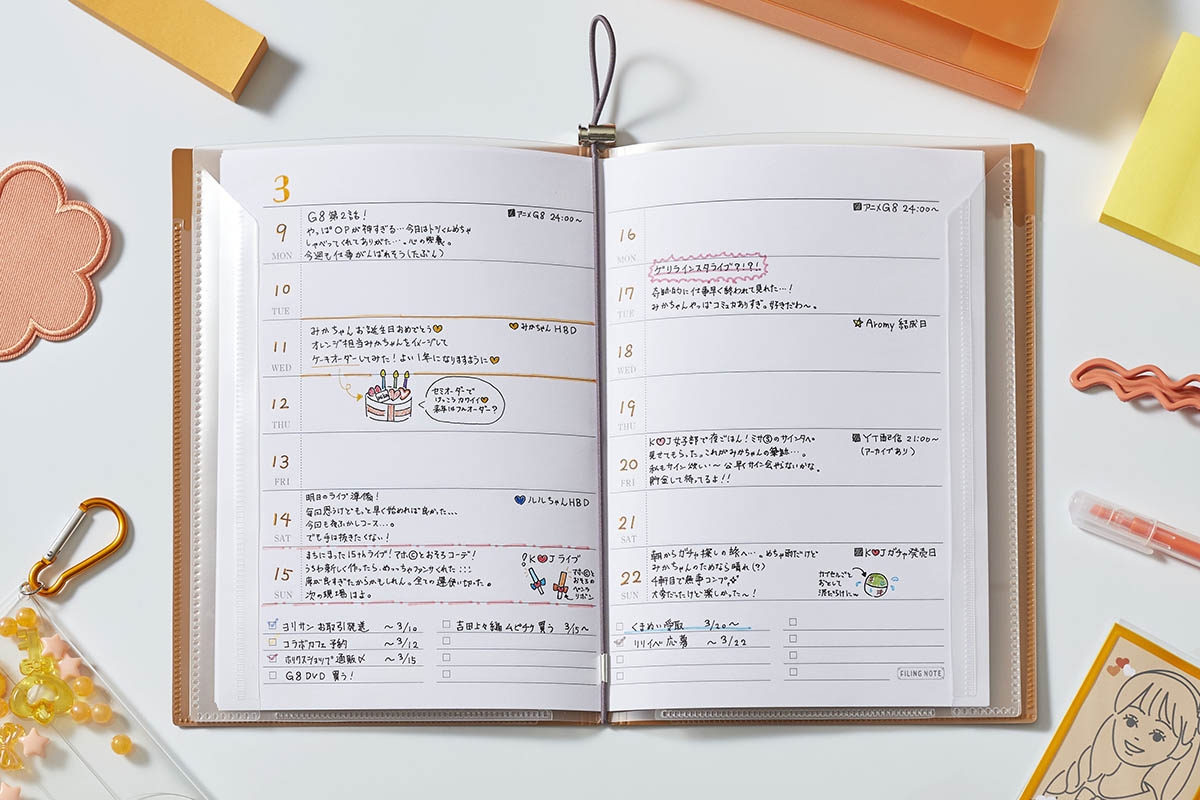 3
9 MON
G8 第2話!
アニメG8 24:00〜
やっぱOPが神すぎる…今日はトツくんめちゃ
しゃべってくれてありがたい…。心の栄養。
今週も仕事がんばれそう(たぶん)
10 TUE
11 WED
みかちゃんお誕生日おめでとう
みかちゃんHBD
オレンジ担当みかちゃんをイメージして
ケーキオーダーしてみた!よい1年になりますように
12 THU
セミオーダーで
けっこうカワイイ
来年はフルオーダー?
13 FRI
14 SAT
明日のライブ準備!
ルルちゃんHBD
毎回思うけどもっと早く始めれば良かった…
今回も夜ふかしコース…。
でも手は抜きたくない!
15 SUN
まちにまった15thライブ!マホ©とおそろコーデ!
K♥Jライブ
うちわ新しく作ったら、めっちゃファンサくれた
席が良すぎたからかもしれん。全ての運使い切った。
次の現場はよ。
マホ©と
おそろの
ペンラ
リボン
ヨリサン お取引発送 〜3/10
コラボカフェ 予約 〜3/12
ホリクスショップ通販〆 〜3/15
G8 DVD 買う!
吉田上々編 ムビチケ買う 3/15〜
16 MON
アニメG8 24:00〜
17 TUE
ゲリラインスタライブ?!?!
奇跡的に仕事早く終われて見れた…!
みかちゃんやっぱコミュカありすぎ。好きだわ〜。
18 WED
Aromy 結成日
19 THU
20 FRI
K♥J女子部で夜ごはん!ミサ⑤のサインタペ
YT配信 21:00〜
見せてもらった。これがみかちゃんの筆跡…。
(アーカイブあり)
私もサイン欲しい〜 公早くサイン会やらないかな。
貯金して待ってるよ!!
21 SAT
22 SUN
朝からガチャ探しの旅へ…。めちゃ雨だけど
K♥Jガチャ発売日
みかちゃんのためなら晴れ(?)
4軒目で無事コンプ
大変だったけど楽しかった〜!
カプセルごと
おとして
泥だらけに〜
くまぬい受取 3/20〜
リリイベ応募 〜3/22
FILING NOTE